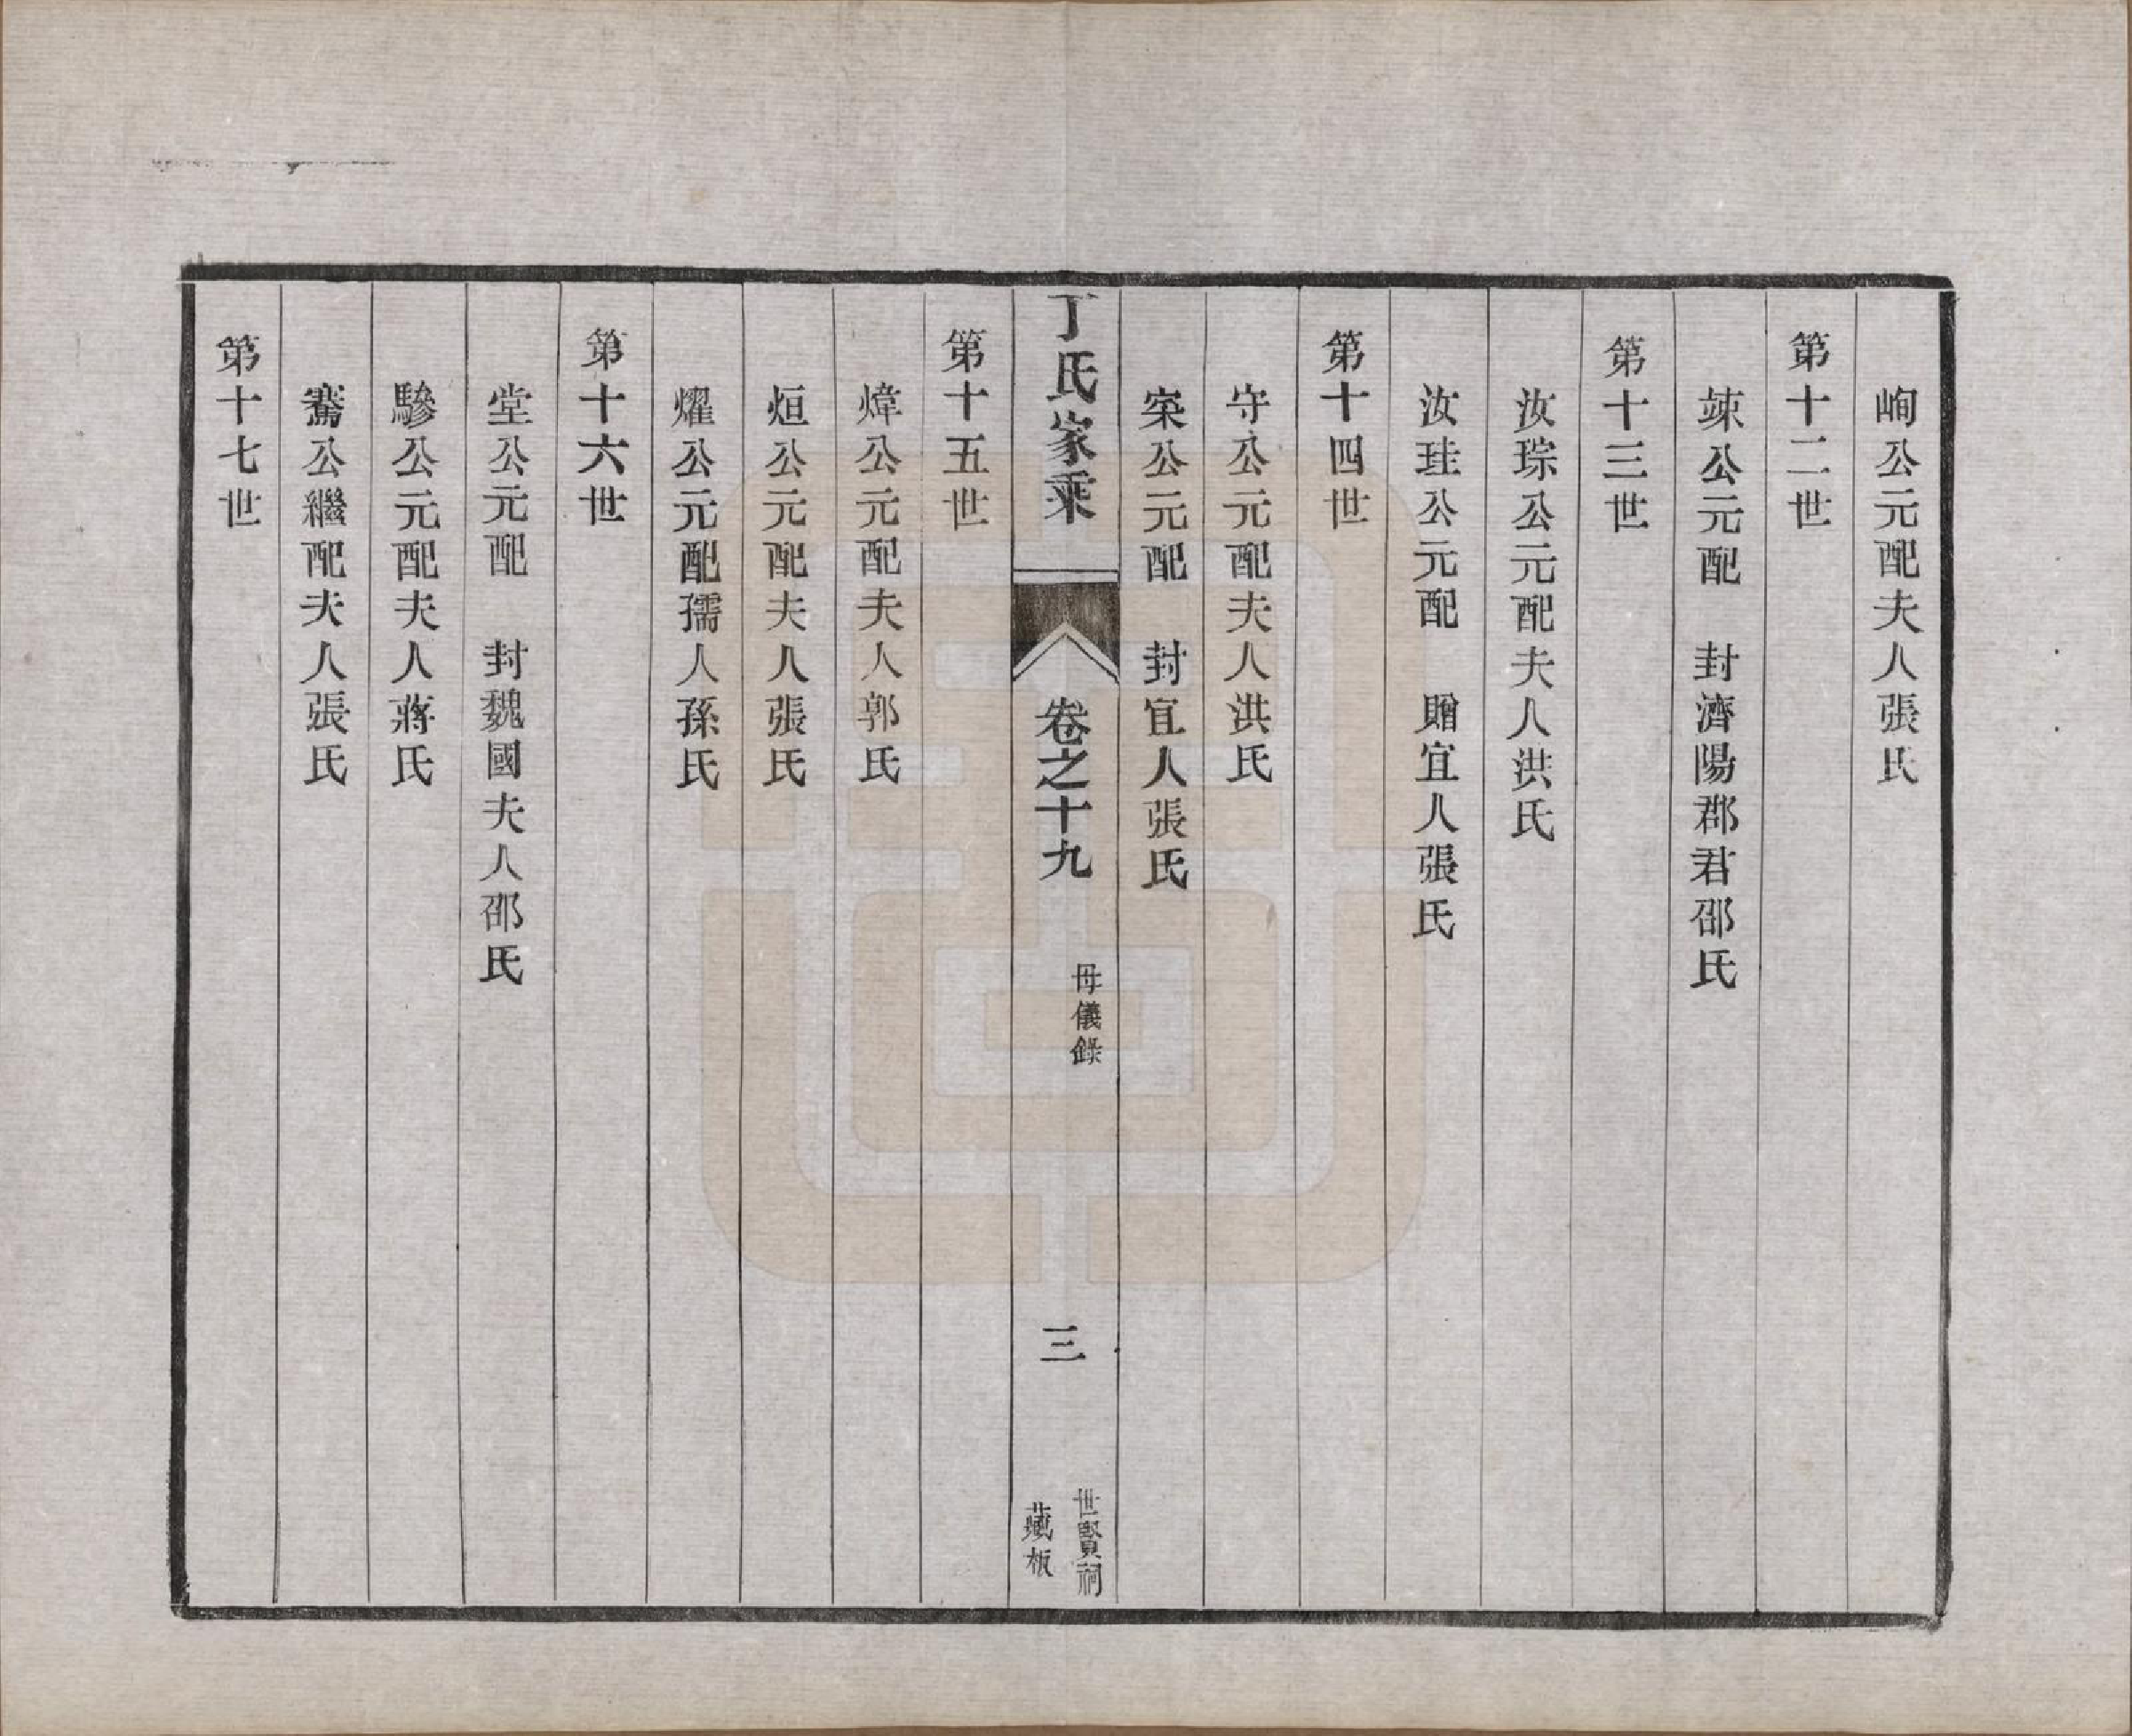 峋公元配夫人張氏
第十二世
竦公元配　封濟陽郡君邵氏
第十三世
汝琮公元配夫人洪氏
汝珪公元配　贈宜人張氏
第十四世
守公元配夫人洪氏
寀公元配　封宜人張氏
丁氏家乘
卷之十九
母儀錄
三
世賢祠
藏板
第十五世
煒公元配夫人郭氏
烜公元配夫人張氏
燿公元配孺人孫氏
第十六世
堂公元配　封魏國夫人邵氏
驂公元配夫人蔣氏
騫公繼配夫人張氏
第十七世